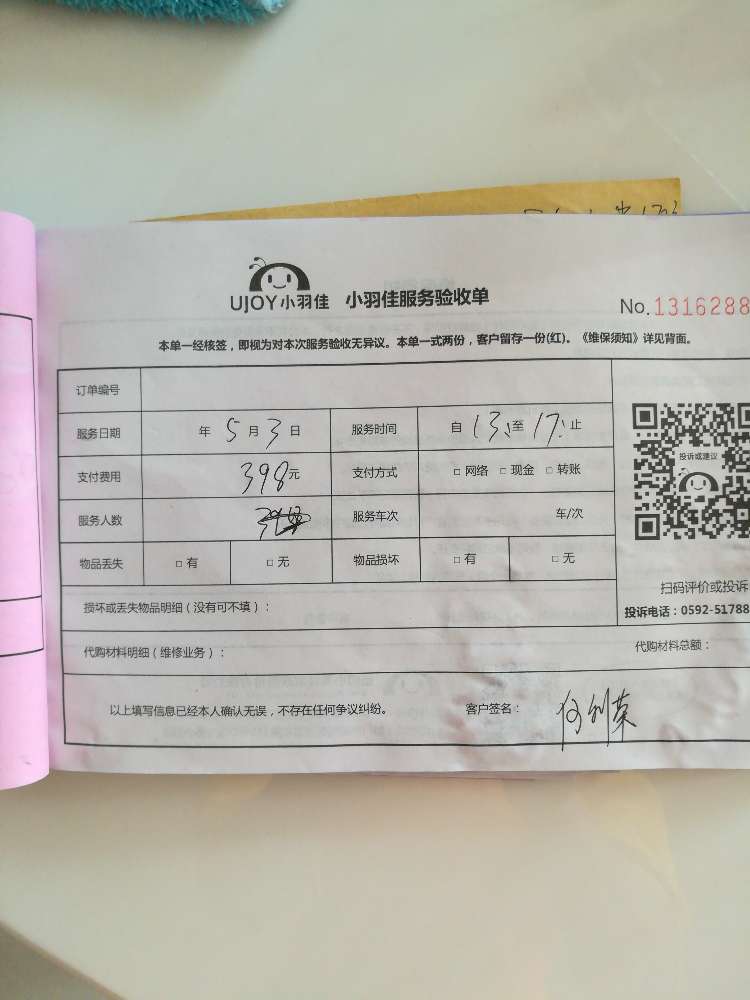 UJOY小羽佳 小羽佳服务验收单
No.1316288
本单一经核签，即视为对本次服务验收无异议。本单一式两份，客户留存一份(红)。《维保须知》详见背面。
订单编号
服务日期 年 5 月 3 日 服务时间 自 13: 至 17: 止
投诉或建议
支付费用 398元 支付方式 □ 网络 □ 现金 □ 转账
服务人数 服务车次 车/次
物品丢失 □ 有 □ 无 物品损坏 □ 有 □ 无
扫码评价或投诉
损坏或丢失物品明细（没有可不填）：
投诉电话：0592-51788
代购材料明细（维修业务）： 代购材料总额：
以上填写信息已经本人确认无误，不存在任何争议纠纷。 客户签名：